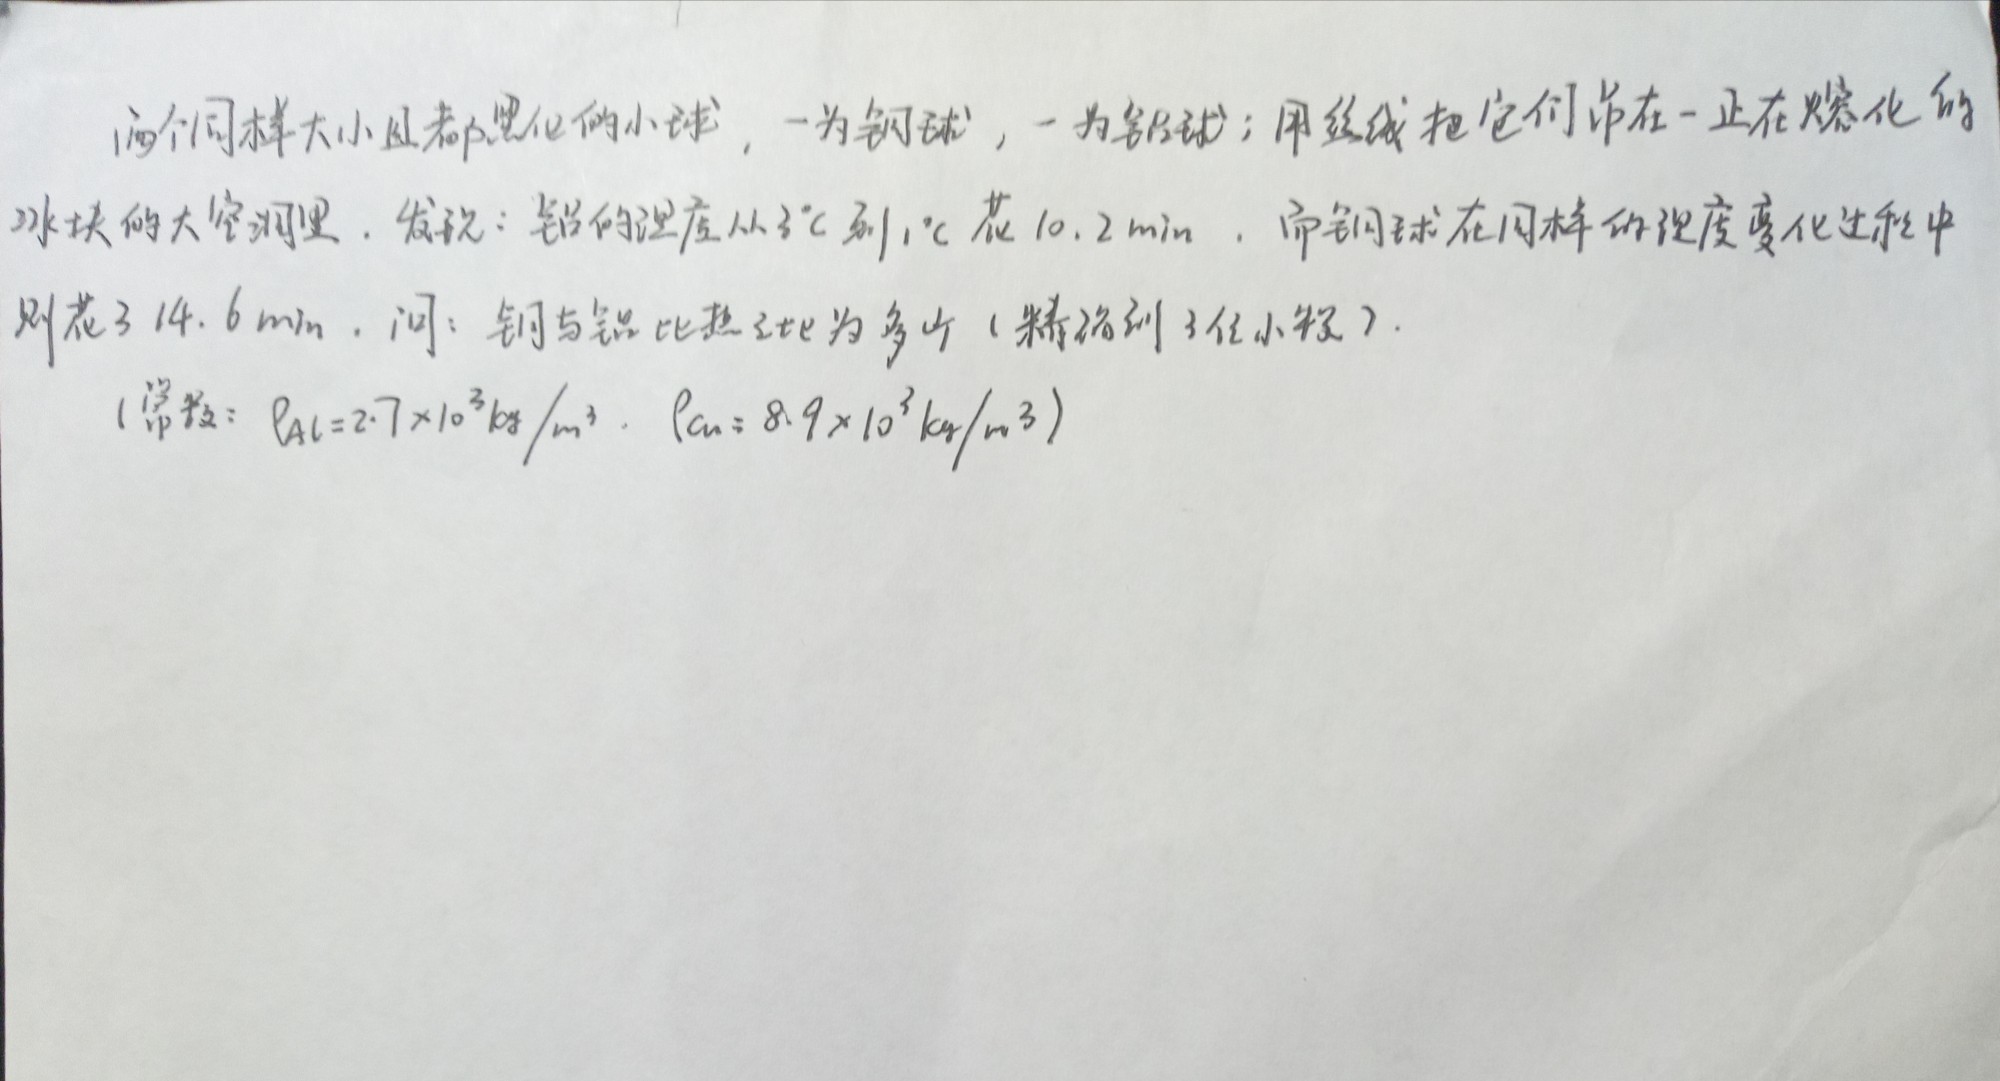 两个同样大小且都黑化的小球，一为铜球，一为铝球；用丝线把它们吊在一正在熔化的
冰块的大空洞里．发现：铝的温度从3℃到1℃花10.2min．而铜球在同样的温度变化过程中
则花了14.6min．问：铜与铝比热之比为多少（精确到3位小数）．
（常数：ρAl=2.7×10³kg/m³．ρCu=8.9×10³kg/m³）